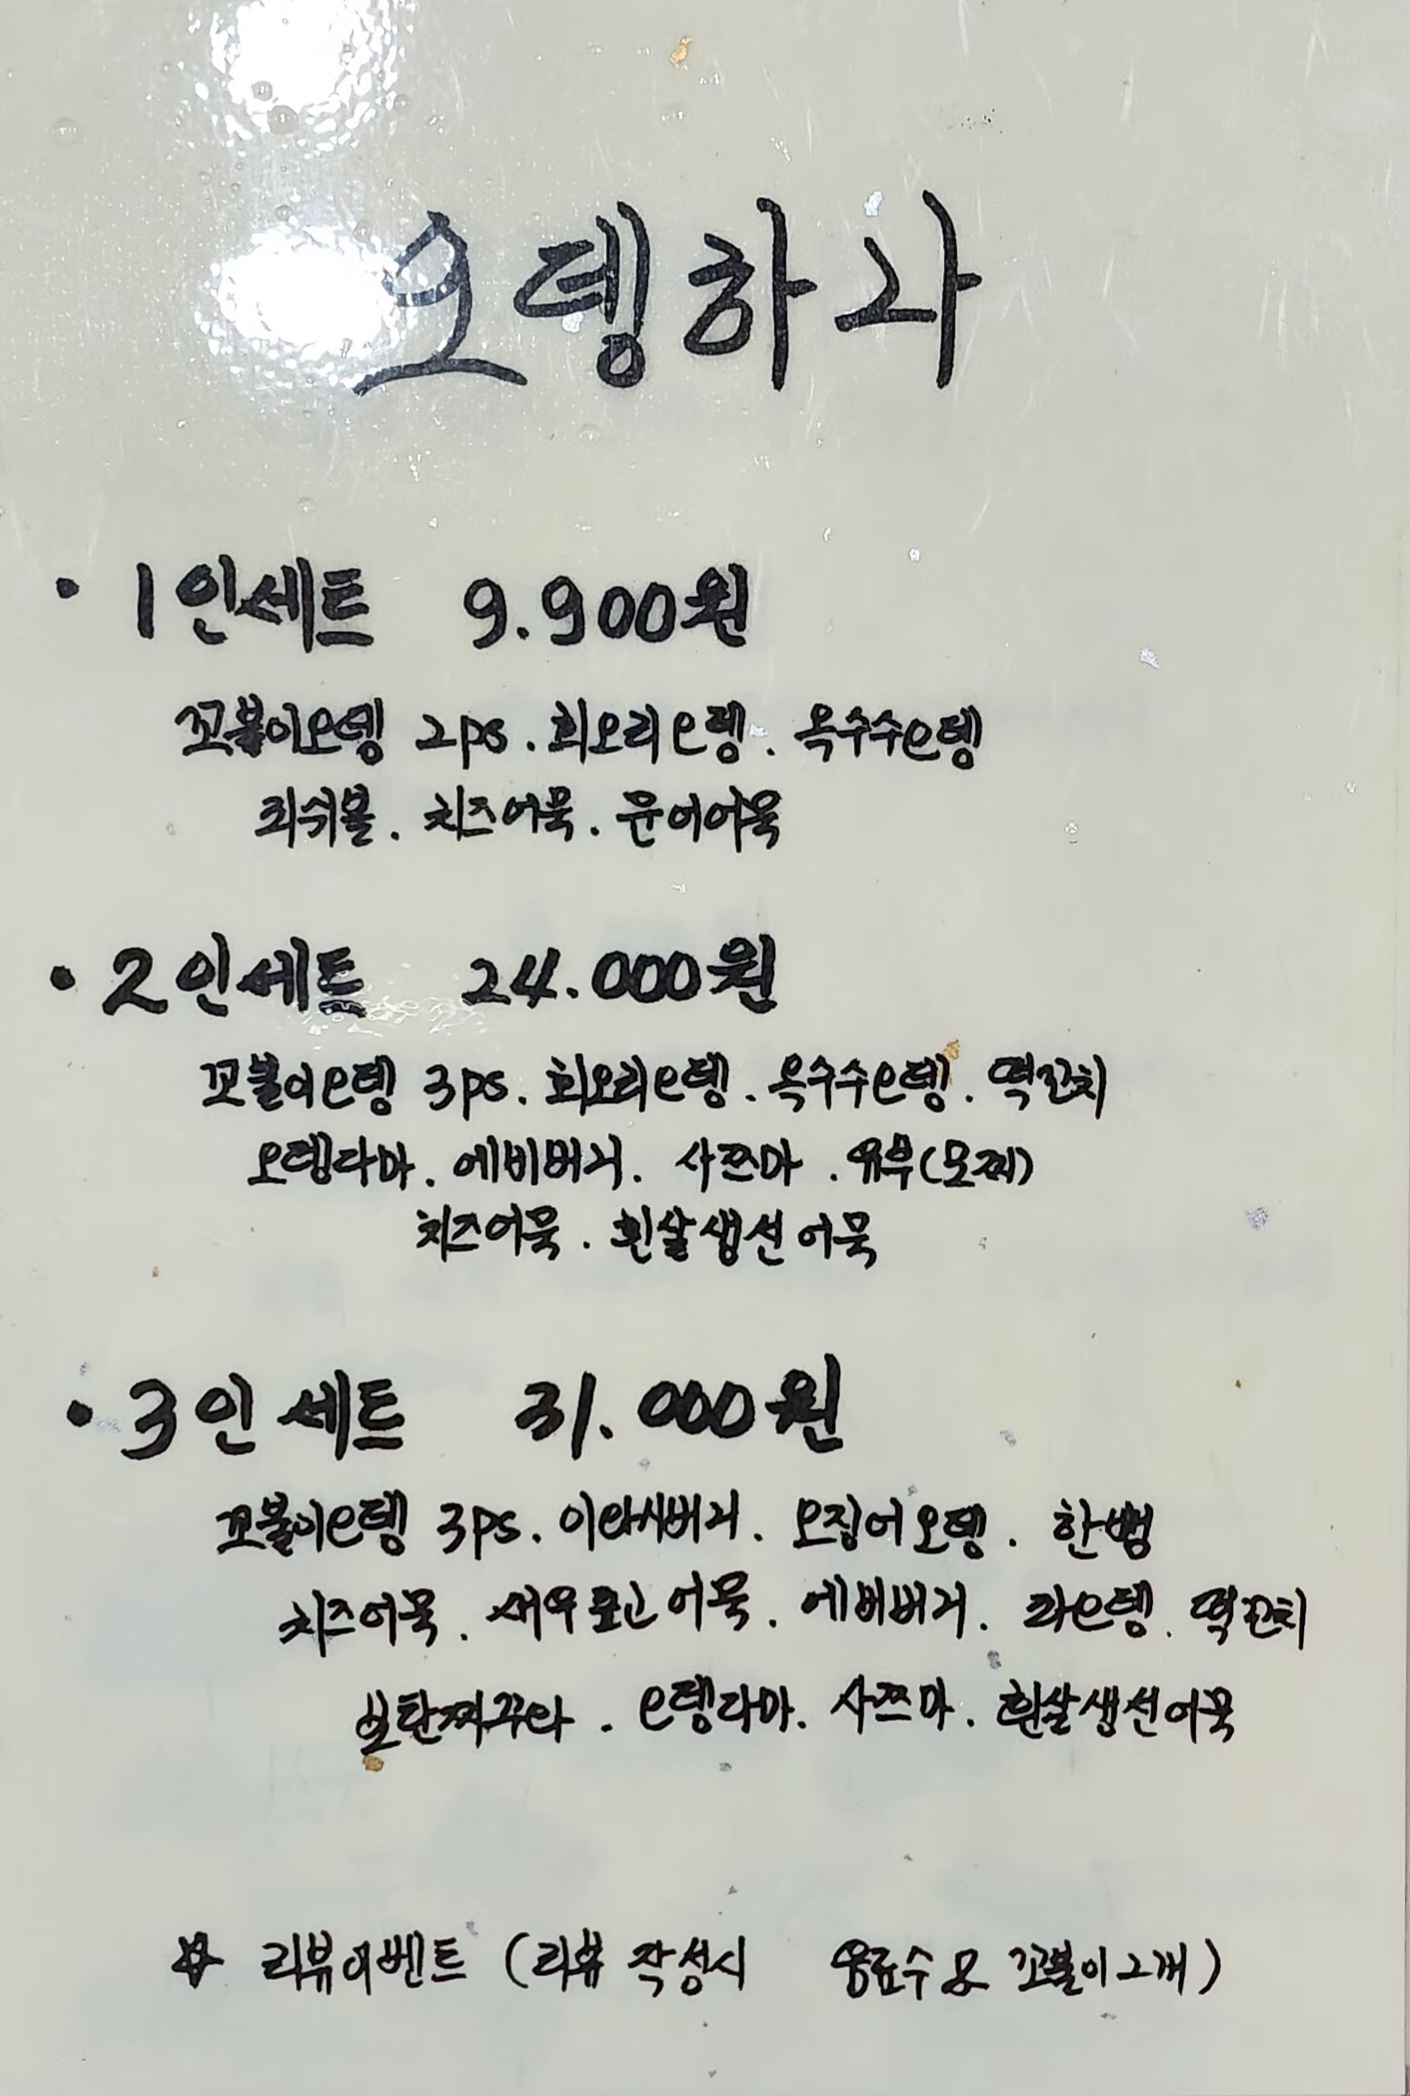 오뎅하라
· 1인세트 9.900원
꼬불이오뎅 2ps. 회오리오뎅. 옥수수오뎅
치즈어묵. 문어어묵
· 2인세트 24.000원
꼬불이오뎅 3ps. 회오리오뎅. 옥수수오뎅. 떡꼬치
오뎅다마. 에비버거. 사쯔마. 유부(모찌)
치즈어묵. 흰살생선어묵
· 3인 세트 31.000원
꼬불이오뎅 3ps. 이와시버거. 오징어오뎅. 한뼘
치즈어묵. 새우표고어묵. 에비버거. 라오뎅. 떡꼬치
오뎅다마. 사쯔마. 흰살생선어묵
☆ 리뷰이벤트 (리뷰 작성시 음료수 or 꼬불이 2개)